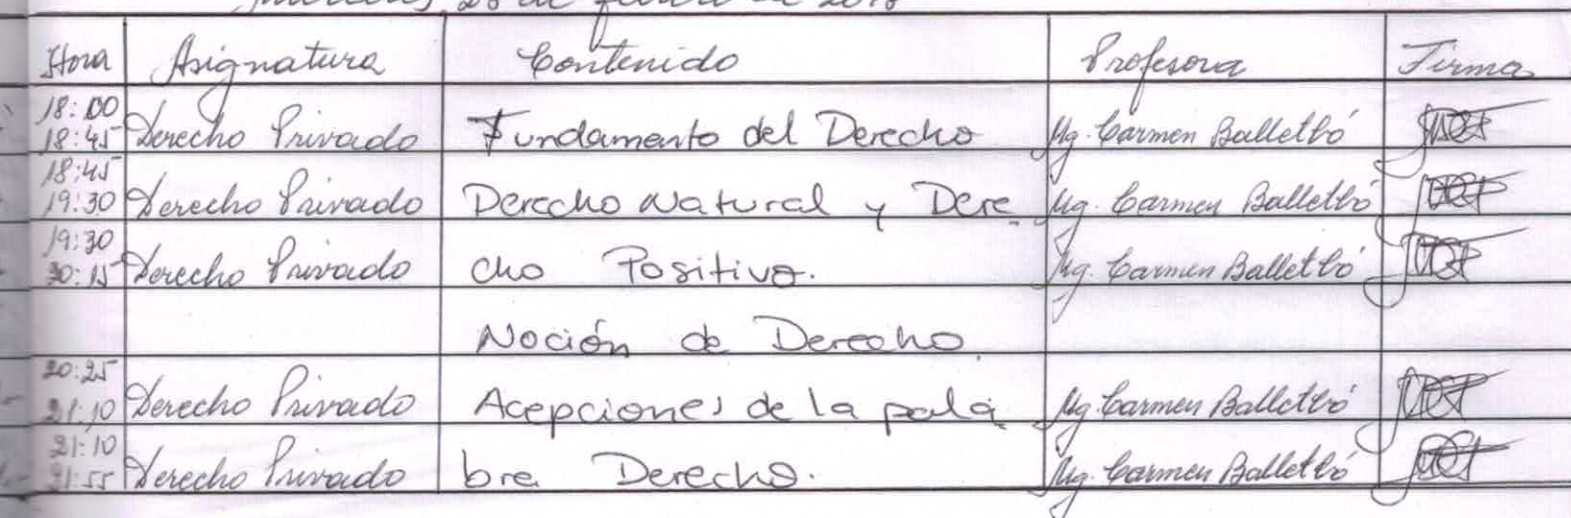 28 de de 2018
Hora Asignatura Contenido Profesora Firma
18:00
18:45 Derecho Privado Fundamento del Derecho Mg. Carmen Balletbó
18:45
19:30 Derecho Privado Derecho Natural y Dere Mg. Carmen Balletbó
19:30
20:15 Derecho Privado cho Positivo. Mg. Carmen Balletbó
Noción de Derecho.
20:25
21:10 Derecho Privado Acepciones de la pala Mg. Carmen Balletbó
21:10
21:55 Derecho Privado bra Derecho. Mg. Carmen Balletbó